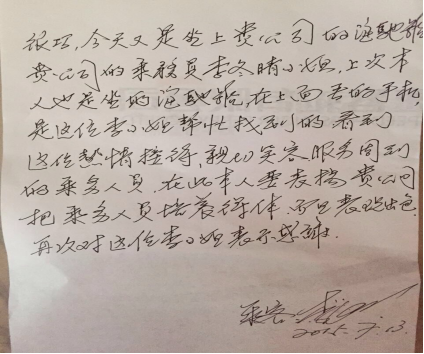 很巧,今天又是坐上贵公司的海驰船
贵公司的乘务员李冬晴小姐,上次本
人也是坐的海驰船,在上面丢的手机,
是这位李小姐帮忙找到的看到
这位热情接待,亲切笑容服务周到
的乘务人员,在此本人要表扬贵公司
把乘务人员培养得体,不但表现出色
再次对这位李小姐表示感谢.
乘客
2015.7.13